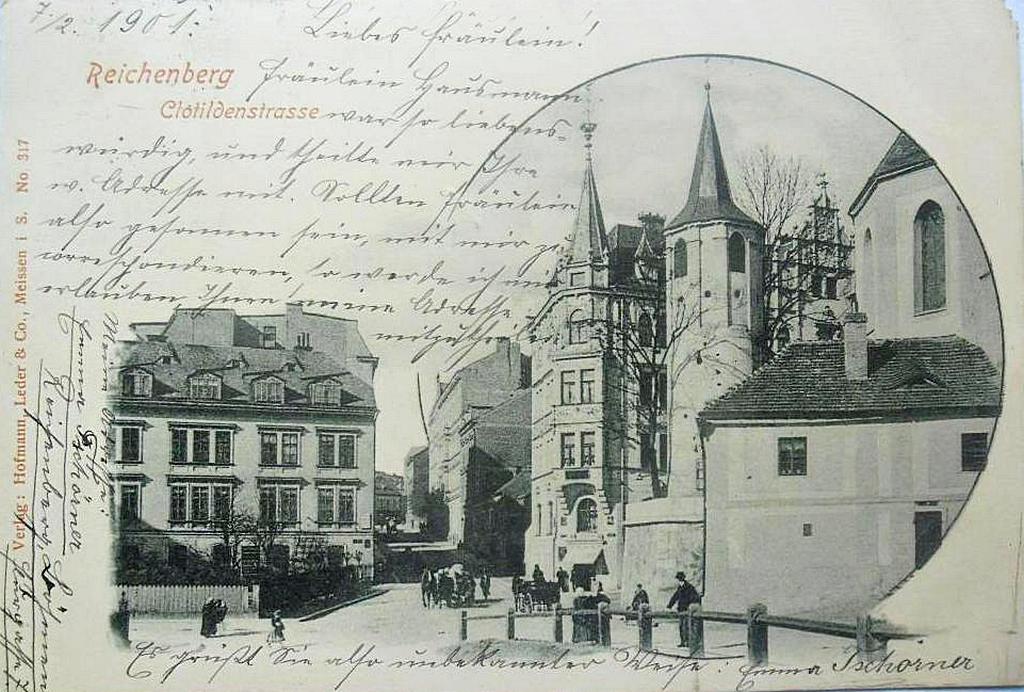 7/2. 1901.
Liebes Fräulein!
Reichenberg
Clotildenstrasse
Fräulein Hausmann
war so liebens-
würdig, und theilte mir Ihre
w. Addresse mit. Sollten Fräulein
also gesonnen sein, mit mir zu
correspondieren, so werde ich mir
erlauben Ihnen meine Adresse
mitzutheilen
Meine Adresse:
Emma Tschörner
Reichenberg, Böhmen
Es grüßt Sie also unbekannter Weise: Emma Tschörner
Verlag: Hofmann, Leder & Co., Meissen i S. No 317